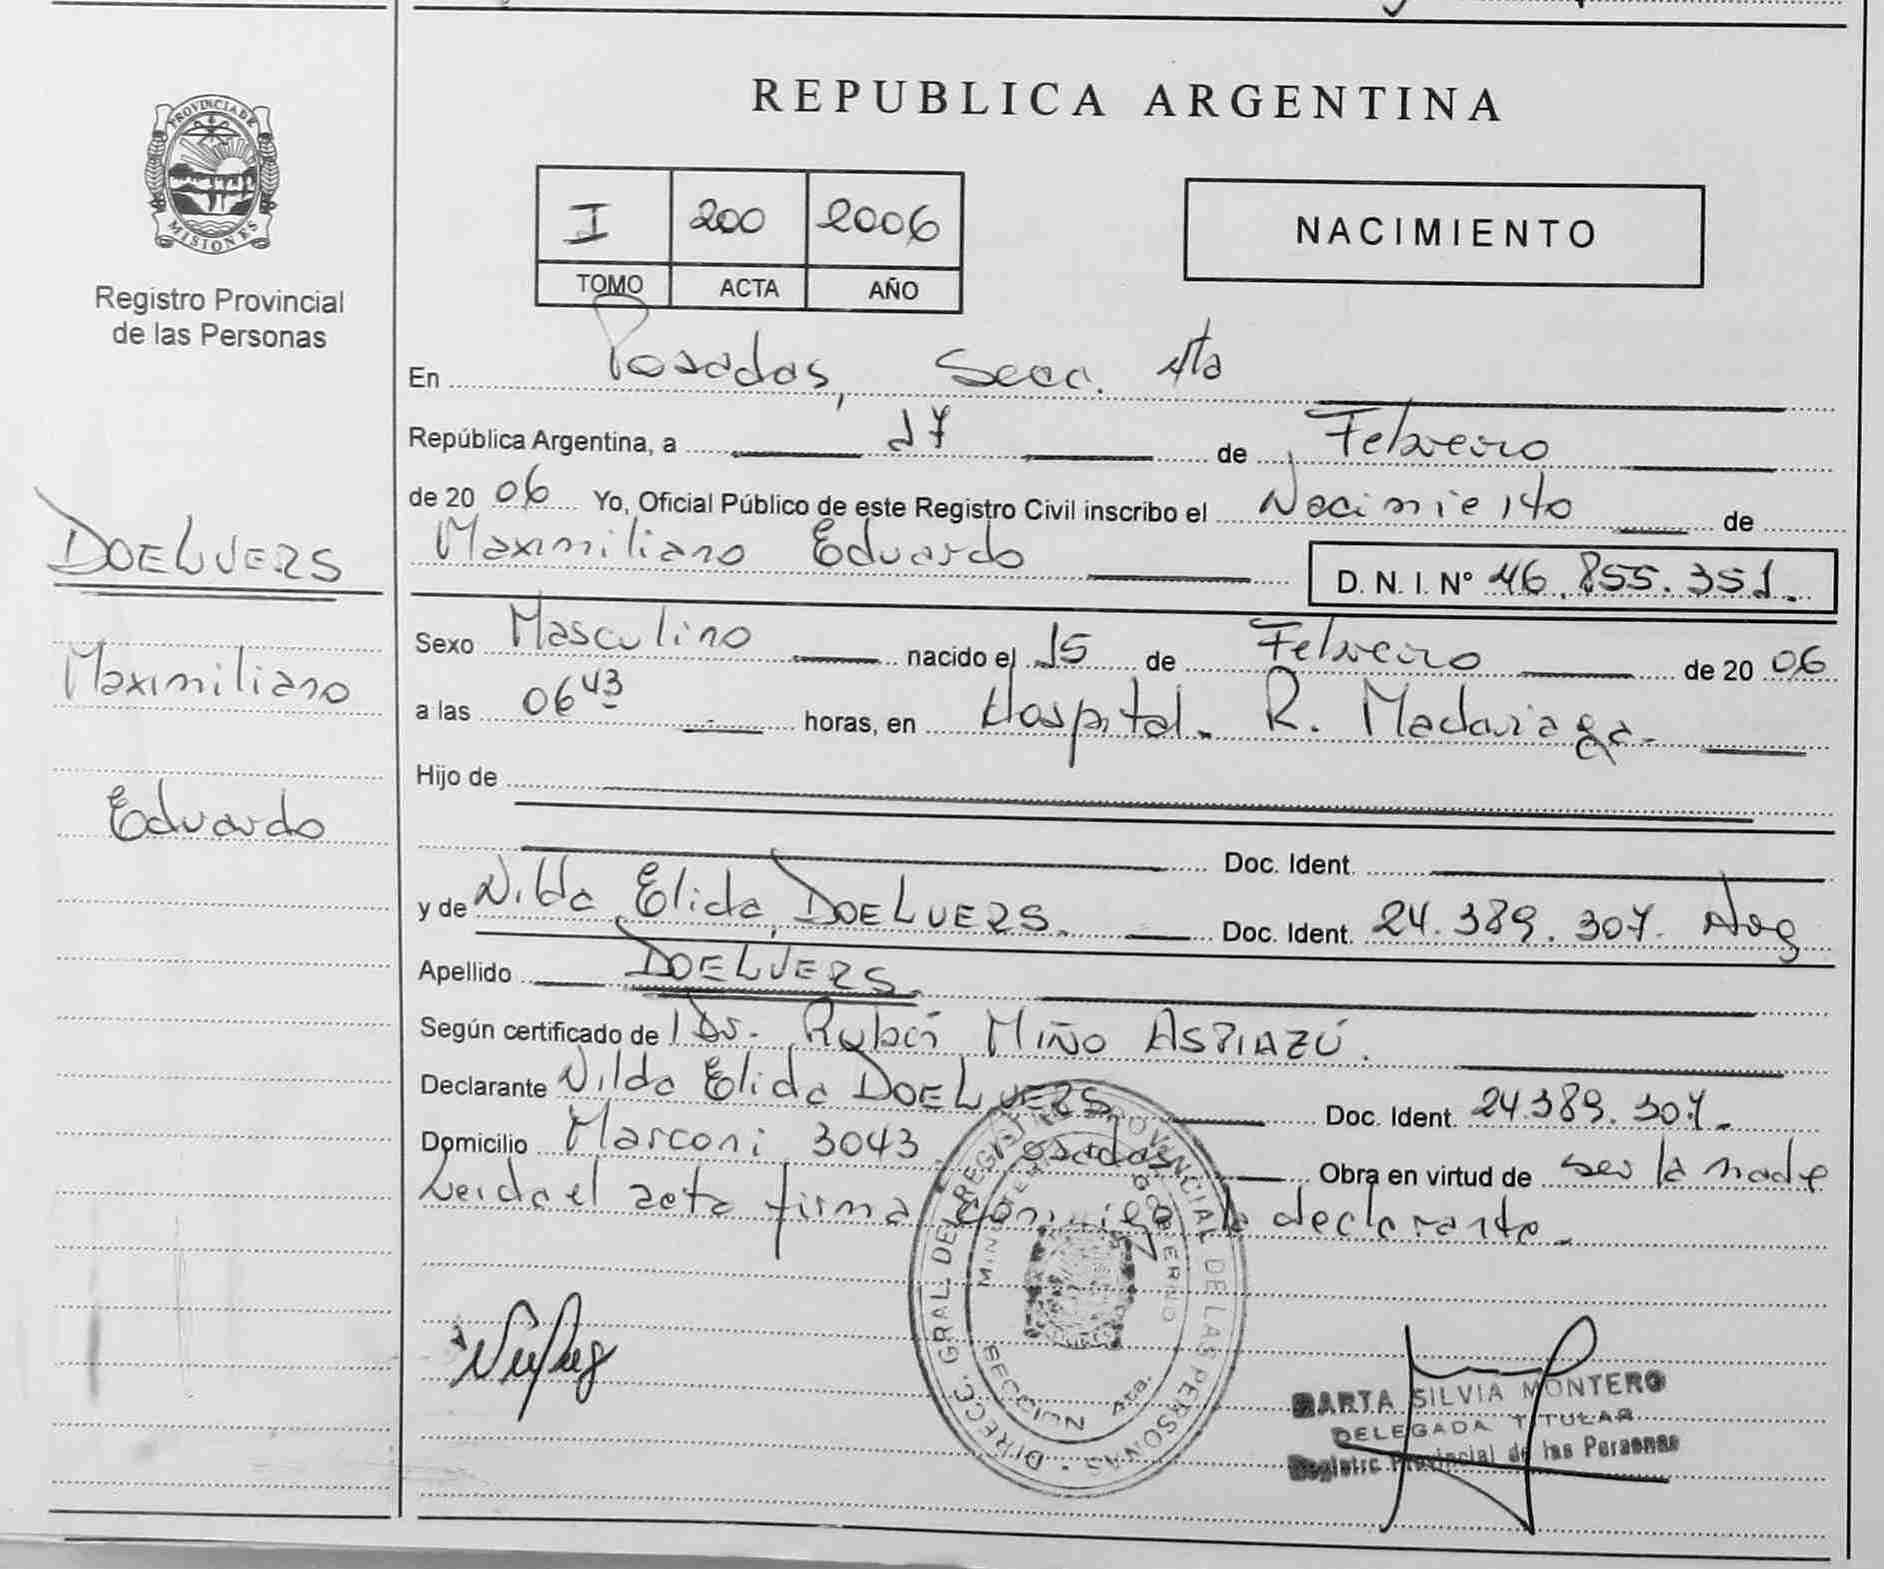 REPUBLICA ARGENTINA
PROVINCIA DE
MISIONES
Registro Provincial
de las Personas
I 200 2006
TOMO ACTA AÑO
NACIMIENTO
En Posadas, Secc. 4ta
República Argentina, a 17 de Febrero
de 20 06 Yo, Oficial Público de este Registro Civil inscribo el Nacimiento de
Maximiliano Eduardo D. N. I. Nº 46.855.351.
DOELUERS
Maximiliano
Eduardo
Sexo Masculino nacido el 15 de Febrero de 20 06
a las 06 43 horas, en Hospital. R. Madariaga.
Hijo de
Doc. Ident.
y de Nilda Elida DOELUERS. Doc. Ident. 24.389.307. Arg
Apellido DOELUERS.
Según certificado de Dr. Rubén MIÑO ASPIAZÚ.
Declarante Nilda Elida DOELUERS Doc. Ident. 24.389.307.
Domicilio Marconi 3043. Posadas Obra en virtud de ser la madre
Leida el acta firma conmigo la declarante.
DIRECC. GRAL. DEL REGISTRO PROVINCIAL DE LAS PERSONAS
MINISTERIO GOBIERNO
SECCION 4ta.
MARTA SILVIA MONTERO
DELEGADA TITULAR
Registro Provincial de las Personas